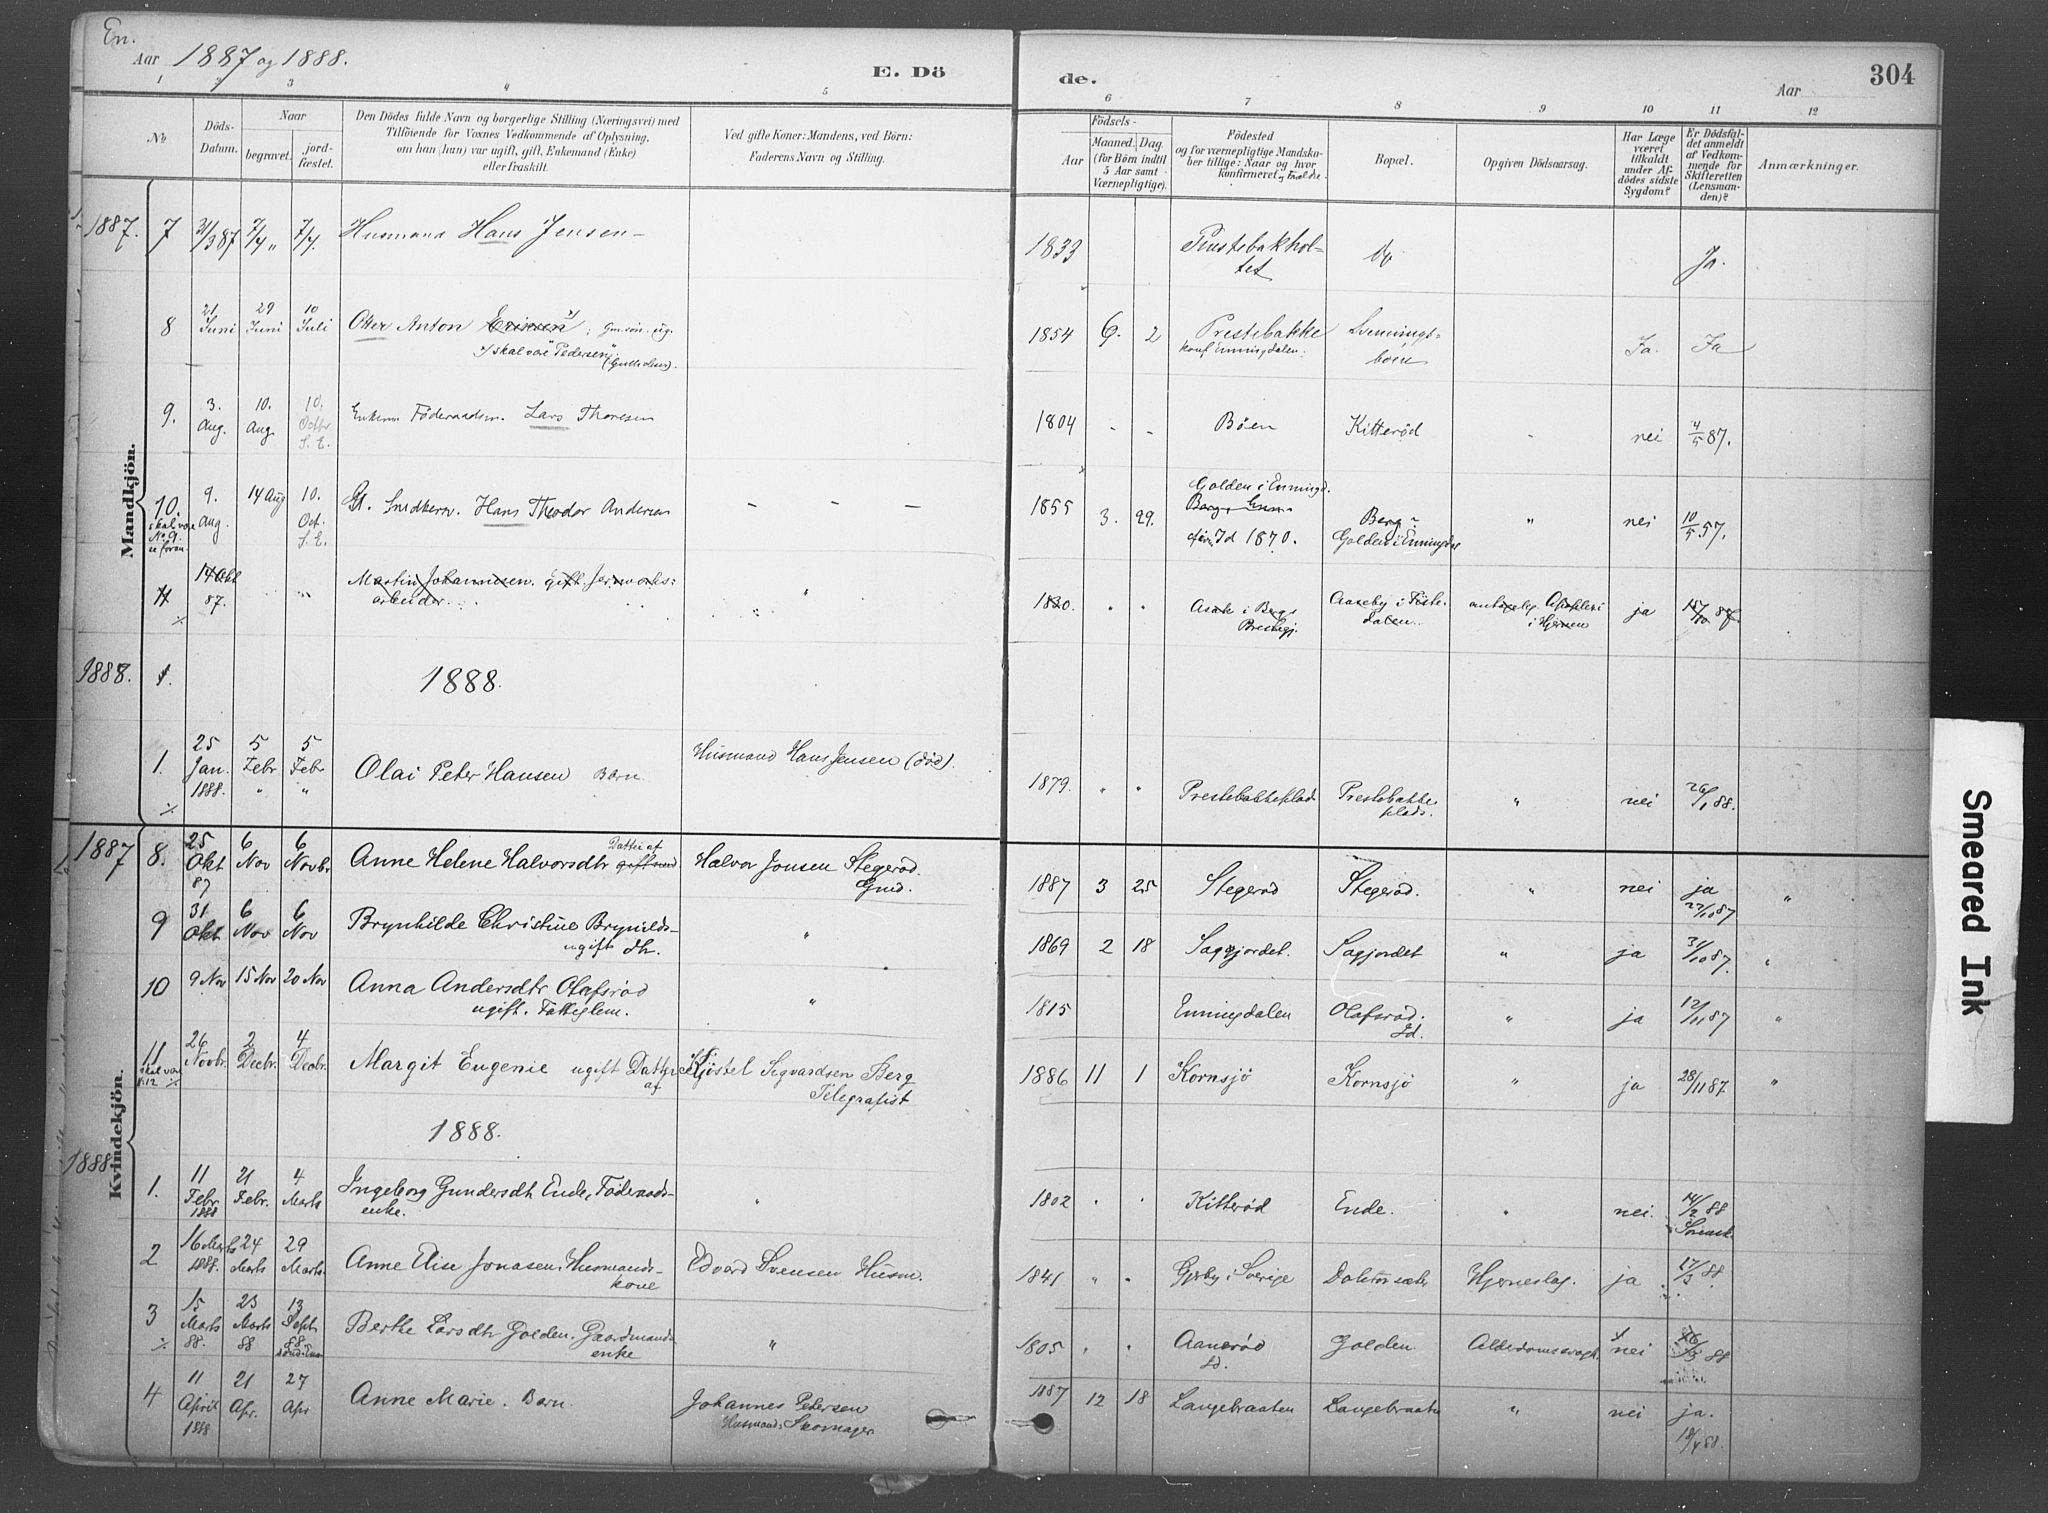 En.
Aar 1887 og 1888.
E. Dö
de.
304
Aar
1 2 3 4 5 6 7 8 9 10 11 12
No
Döds-
Datum.
Naar
begravet.
jord-
fæstet.
Den Dödes fulde Navn og borgerlige Stilling (Næringsvei) med
Tilföiende for Voxnes Vedkommende af Oplysning,
om han (hun) var ugift, gift, Enkemand (Enke)
eller fraskilt.
Ved gifte Koner: Mandens, ved Börn:
Faderens Navn og Stilling.
Födsels-
Aar
Maaned. Dag.
(for Börn indtil
5 Aar samt
Værnepligtige).
Födested
og for værnepligtige Mandska-
ber tillige: Naar og hvor
konfirmeret
Bopæl.
Opgiven Dödsaarsag.
Har Læge
været
tilkaldt
under Af-
dödes sidste
Sygdom?
Er Dödsfal-
det anmeldt
af Vedkom-
mende for
Skifteretten
(Lensman-
den)?
Anmærkninger.
Mandkjön.
1887. 7 31/3 87 7/4 " 7/4. Husmand Hans Jensen 1833 Do Ja.
8 21 Juni 29 Juni 10 Juli Otter Anton ; Gm.søn. ug.
skal være "Pedersen"
1854 6. 2 Prestebakke
konf Enningdalen. Ja. Ja
9. 3. Aug. 10. Aug. 10. Octbr S. E. Enkem. Føderaadsm. Lars Thoresen 1804 - - Bøen Kitterød - nei 4/5 87.
10. skal være No 9. 9. Aug. 14 Aug 10. Oct. S. E. Snedkersv. Hans Theodor Andersen - - -
1855 3. 29. Golden i Enningd.
Berg
Id 1870. Berg
Golden i Enningdal " nei 10/5 57.
11 14 Okt 87. Martin Johannesen. gift. Jernverks-
arbeider. "
1830. " " Asak i Bergs
Prestegj. Aaseby i Tiste-
dalen. antagelig Apoplexi
i Hjernen ja 15/10 87
1888. 1. 1888.
1. 25 Jan. 1888. 5 Febr " 5 Febr " Olai Peter Hansen Barn Husmand Hans Jensen (død).
1879. " " Prestebakkeplads Prestebakke
plads. " nei 26/1 88.
Kvindekjön.
1887 8. 25 Okt 87 6 Nov 6 Novbr Anne Helene Halvorsdtr Datter af Halvor Jonsen Stegerød.
Gmd.
1887 3 25 Stegerød Stegerød. " nei ja
22/10 87 "
9 31 Okt 6 Nov 6 Nov Brynhilde Christine Brynilds-
ugift dtr. "
1869 2 18 Saggjordet. Sagjordet " ja 31/10 87. "
10 9 Nov 15 Nov 20 Nov Anna Andersdtr Olafsrød
ugift. Fattiglem. "
1815 Enningdalen Olafsrød.
Id. " ja 12/11 87 "
11 skal være N. 12 26 Novbr. 2 Decbr. 4 Decbr. Margit Eugenie ugift Datter
af Kjøstel Sigvardsen Berg
Telegrafist
1886 11 1 Kornsjö Kornsjö " ja 28/11 87 "
1888.
1888 1. 11 Febr 1888 21 Febr. 4 Marts Ingeborg Gundersdt Ende, Føderaads-
enke. "
1802 " " Kitterød Ende. " nei. 14/2 88
2 16 Marts 1888. 24 Marts 29 Marts. Anne Elise Jonasen, Husmands-
kone Edvard Svensen Husm.
1841 " " i Sverige Doktorsæter Hjerneslag. ja 17/3 88
3 15 Marts 88. 23 Marts 88 13 Sept 88 Berthe Larsdtr Golden. Gaardmands
enke "
1805 " " Aanerød
Id. Golden. Alderdomssvagh. nei 88
4 11 April 1888 21 Apr. 27 Apr Anne Marie. Barn. Johannes Petersen
Husmand: Skomager
1887 12 18 Langebraaten Langebraaten " nei ja.
18/4 88.
Smeared Ink